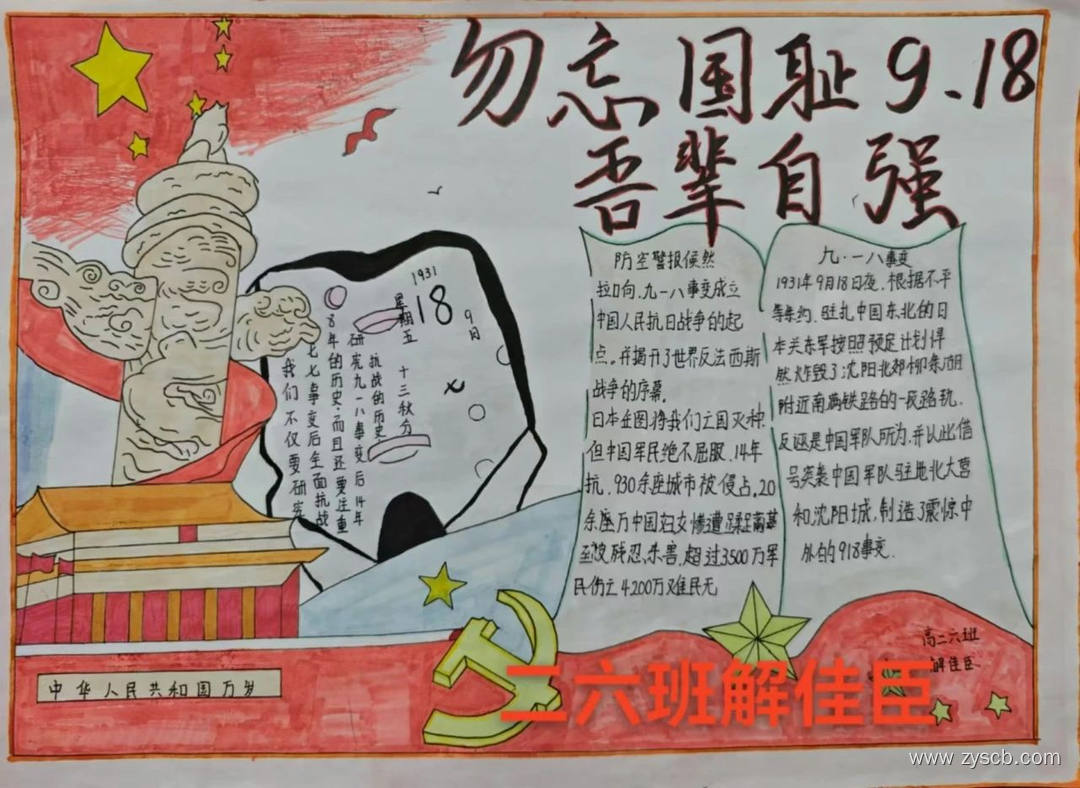 勿忘国耻9.18
吾辈自强
防空警报倏然
拉响，九一八事变成立
中国人民抗日战争的起
点。并揭开了世界反法西斯
战争的序幕。
日本企图将我们亡国灭种.
但中国军民绝不屈服.14年
抗.930余座城市被侵占.20
余座万中国妇女惨遭
残忍杀害.超过3500万军
民伤亡4200万难民无
九·一八事变
1931年9月18日夜.根据不平
等条约.驻扎中国东北的日
本关东军按照预定计划悍
然炸毁了沈阳北郊柳条湖
附近南满铁路的一段路轨.
反诬是中国军队所为.并以此借
号突袭中国军队驻地北大营
和沈阳城,制造了震惊中
外的918事变.
1931
18
9月
星期五
十三秋分
抗战的历史
研究九一八事变后14年
8年的历史.而且还要注重
七七事变后全面抗战
我们不仅要研究
中华人民共和国万岁
高二六班
解佳臣
二六班解佳臣
www.zyscb.com